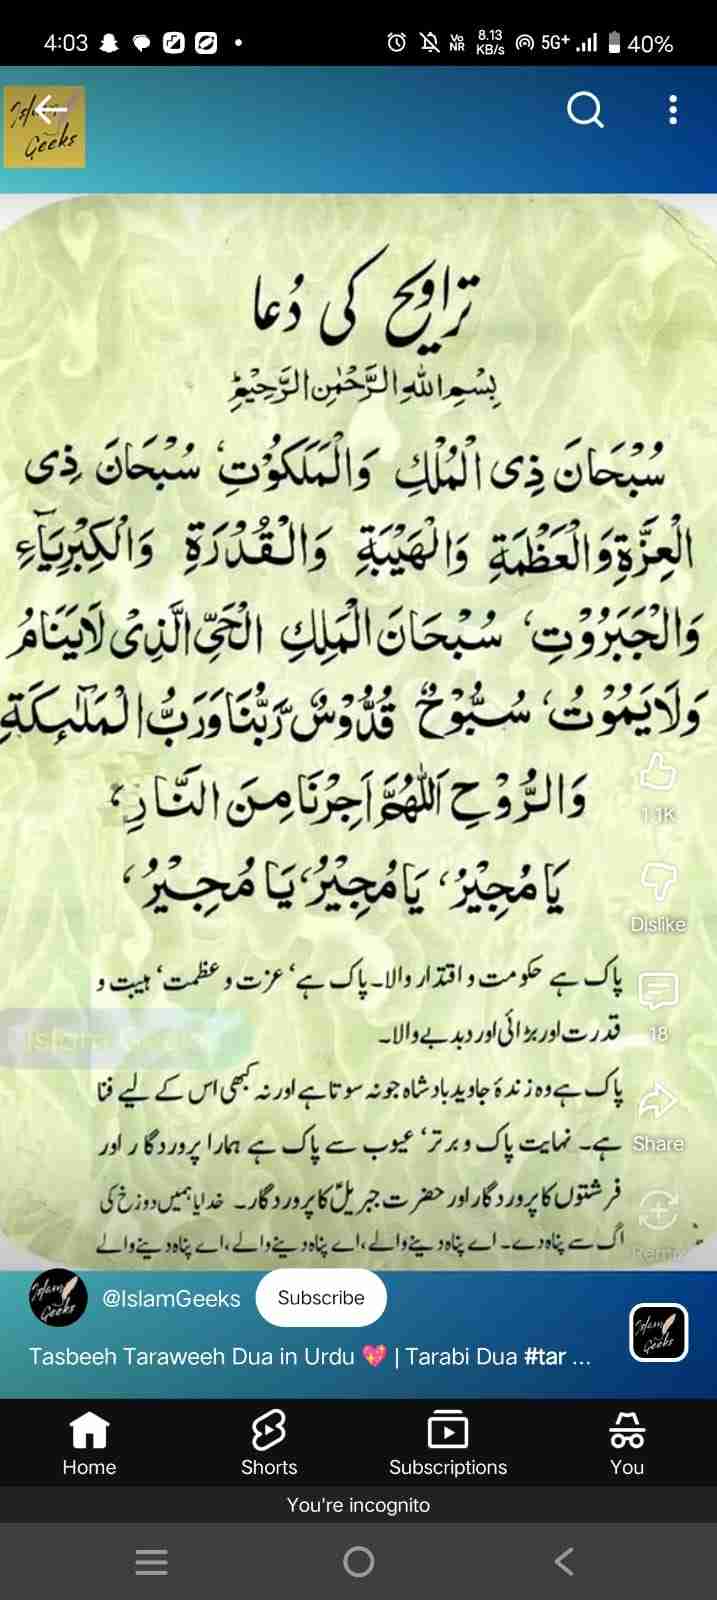 4:03
VoNR 8.13 KB/s 5G+ 40%
Islam Geeks
تراویح کی دُعا
بِسْمِ اللهِ الرَّحْمٰنِ الرَّحِيْمِ
سُبْحَانَ ذِی الْمُلْكِ وَالْمَلَكُوْتِ، سُبْحَانَ ذِی
الْعِزَّةِ وَالْعَظْمَةِ وَالْهَيْبَةِ وَالْقُدْرَةِ وَالْكِبْرِيَآءِ
وَالْجَبَرُوْتِ، سُبْحَانَ الْمَلِكِ الْحَیِّ الَّذِیْ لَا يَنَامُ
وَلَا يَمُوْتُ، سُبُّوْحٌ قُدُّوْسٌ رَّبُّنَا وَرَبُّ الْمَلٰٓئِكَةِ
وَالرُّوْحِ اَللّٰهُمَّ اَجِرْنَا مِنَ النَّارِ،
يَا مُجِيْرُ، يَا مُجِيْرُ، يَا مُجِيْرُ،
پاک ہے حکومت و اقتدار والا۔ پاک ہے، عزت و عظمت، ہیبت و
قدرت اور بڑائی اور دبدبے والا۔
پاک ہے وہ زندۂ جاوید بادشاہ جو نہ سوتا ہے اور نہ کبھی اس کے لیے فنا
ہے۔ نہایت پاک و برتر، عیوب سے پاک ہے ہمارا پروردگار اور
فرشتوں کا پروردگار اور حضرت جبریلؑ کا پروردگار۔ خدایا ہمیں دوزخ کی
آگ سے پناہ دے۔ اے پناہ دینے والے، اے پناہ دینے والے، اے پناہ دینے والے
1.1K
Dislike
18
Share
Remix
Islam Geeks
Islam Geeks
@IslamGeeks
Subscribe
Islam Geeks
Tasbeeh Taraweeh Dua in Urdu 💖 | Tarabi Dua #tar ...
Home
Shorts
Subscriptions
You
You're incognito